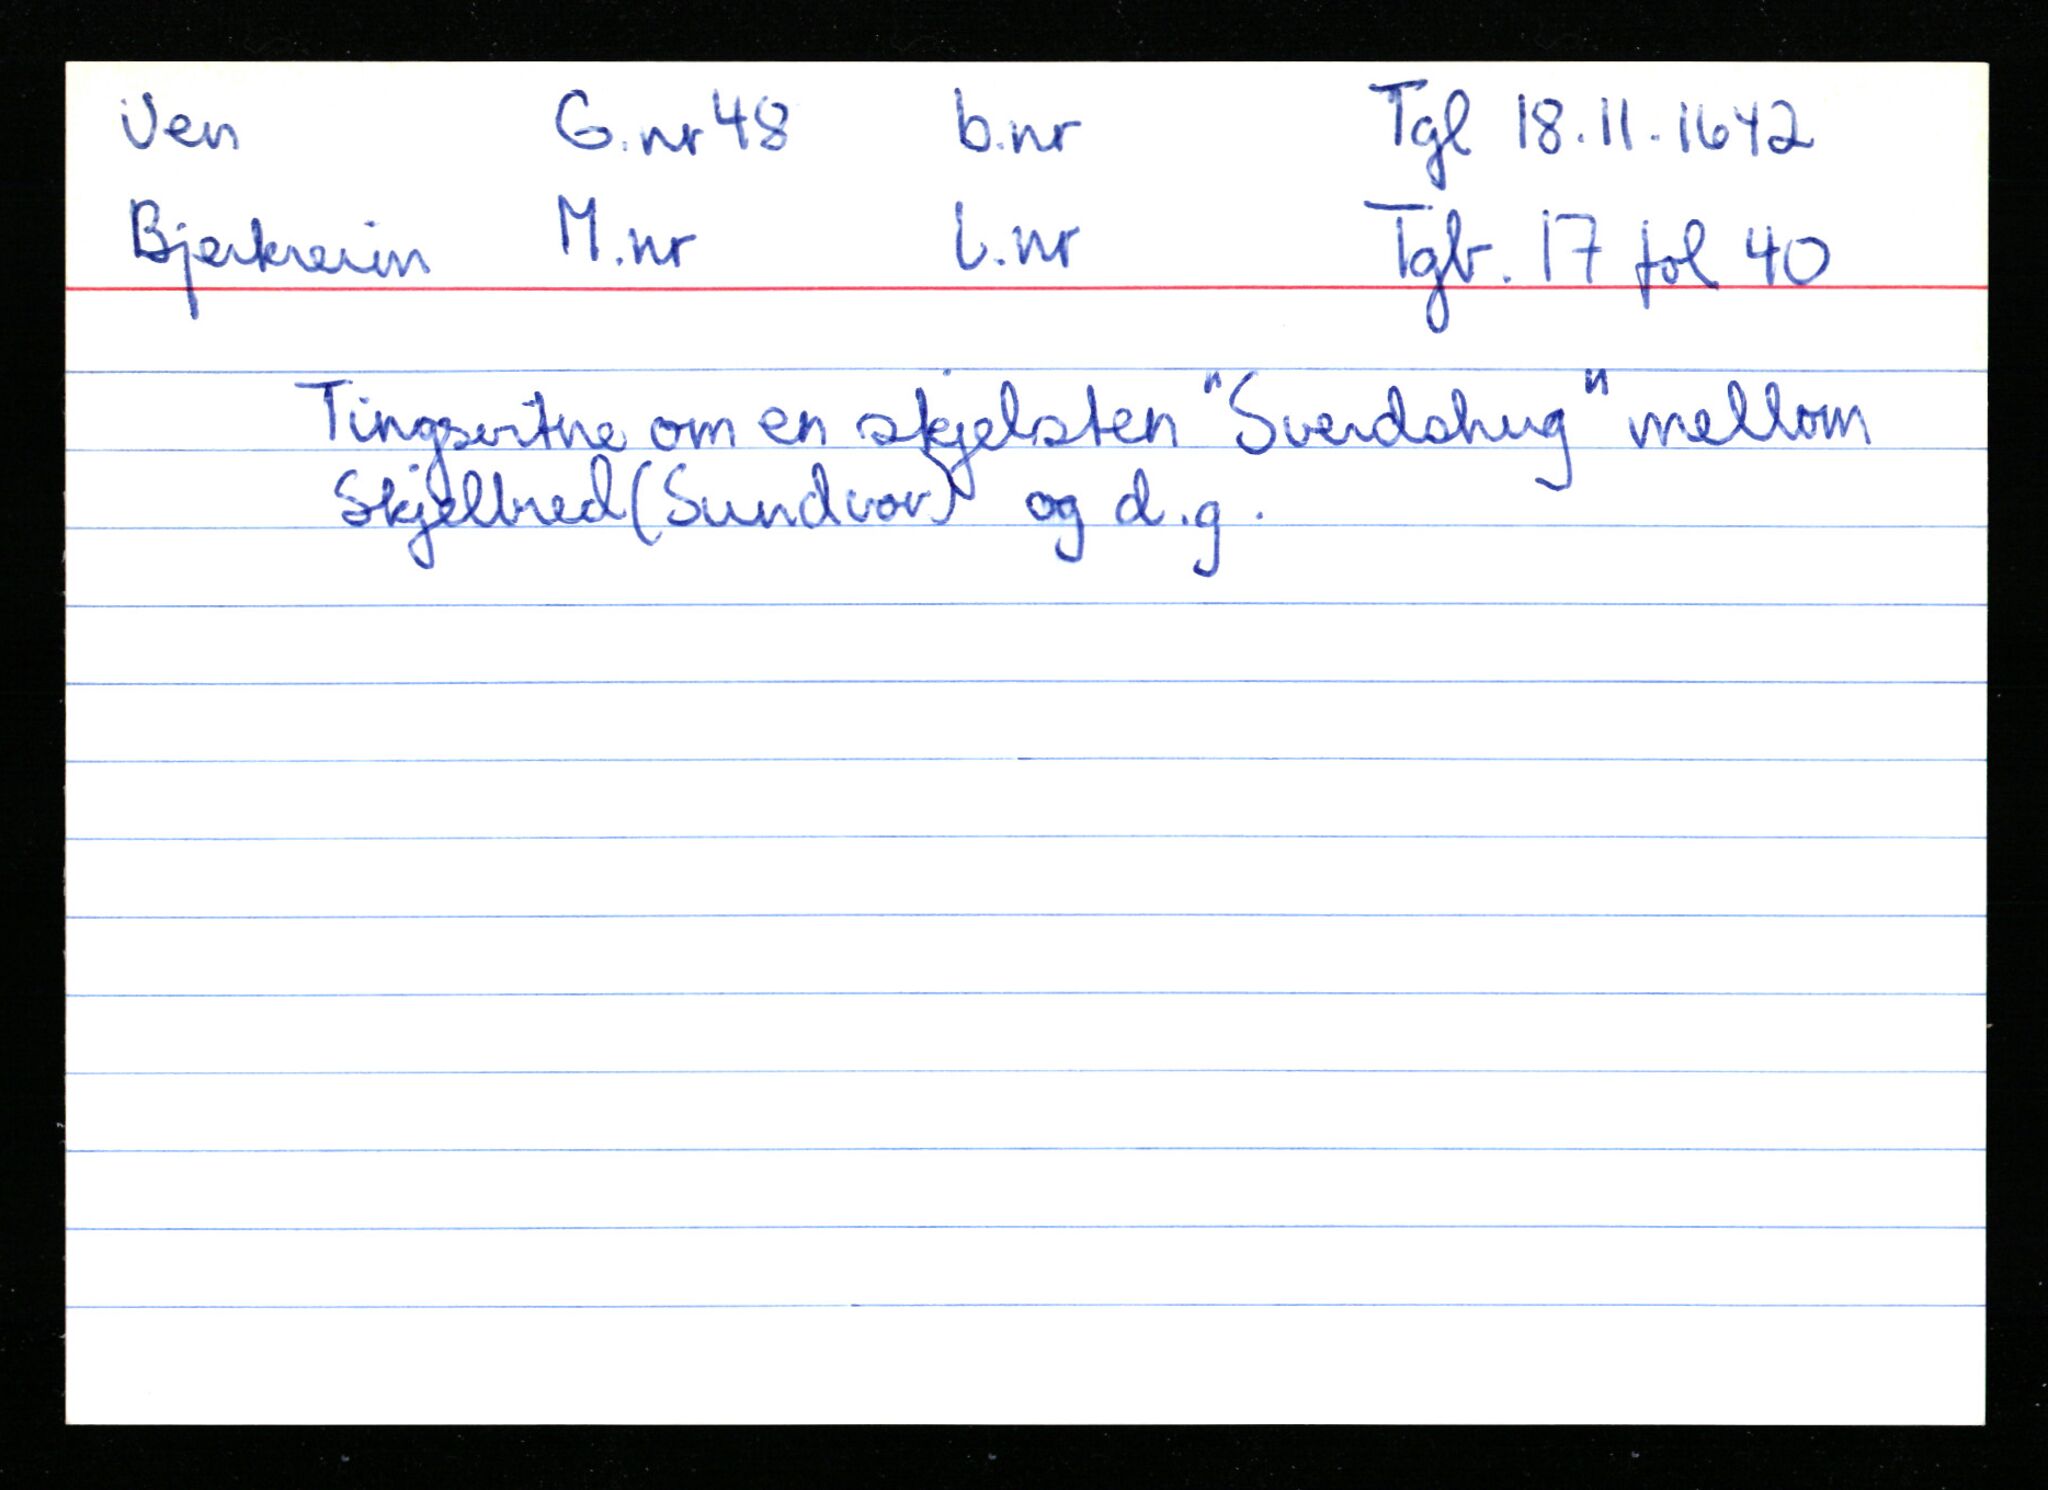 Ven G.nr 48 b.nr Tgl 18.11.1642
Bjerkreim M.nr L.nr Tgb. 17 fol 40
Tingsvitne om en skjelsten "Sverdshug" mellom
Skjelbred (Sundvor) og d.g.